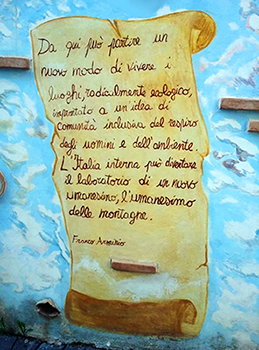 Da qui può partire un
nuovo modo di vivere i
luoghi, radicalmente ecologico,
improntato a un'idea di
comunità inclusiva del respiro
degli uomini e dell'ambiente.
L'Italia interna può diventare
il laboratorio di un nuovo
umanesimo, l'umanesimo
delle montagne.
Franco Arminio